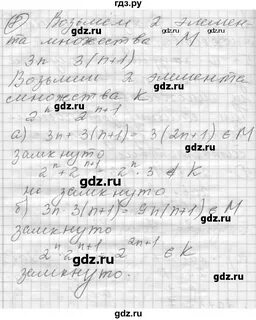 гдз.ру
① Возьмем 2 элемен-
та множества M
3n 3(n+1)
Возьмем 2 элемента
множества K
2ⁿ 2ⁿ⁺¹
а) 3n + 3(n+1) = 3(2n+1) ∈ M
замкнуто
2ⁿ + 2ⁿ⁺¹ = 2ⁿ · 3 ∉ K
не замкнуто
б) 3n · 3(n+1) = 9n(n+1) ∈ M
замкнуто
2ⁿ · 2ⁿ⁺¹ = 2²ⁿ⁺¹ ∈ K
замкнуто.
gdz.ru
gdz.ru
gdz.ru
gdz.ru
gdz.ru
gdz.ru
gdz.ru
gdz.ru
gdz.ru